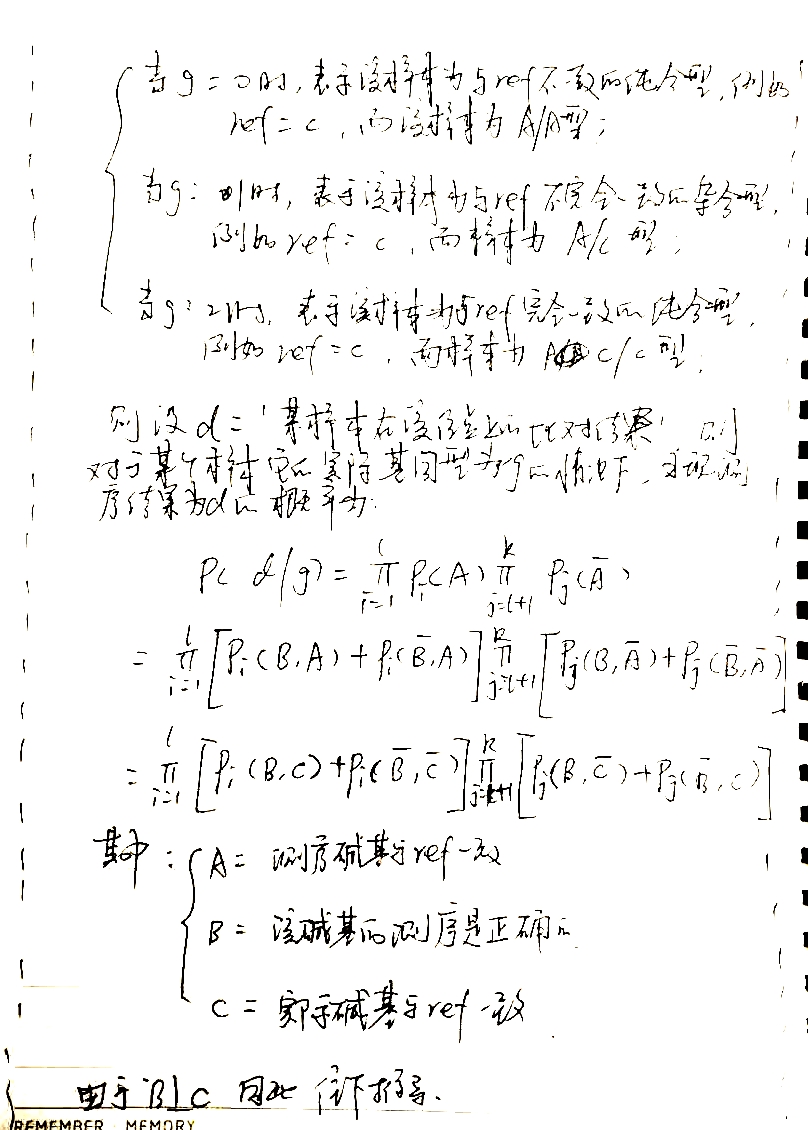 当g=0时,表示该样本为与ref不一致的纯合型,例如
ref=C,而该样本为A/A型;
当g=1时,表示该样本为与ref不完全一致的杂合型,
例如ref=C,而样本为A/C型;
当g=2时,表示该样本为与ref完全一致的纯合型,
例如ref=C,而样本为C/C型;
则设d=‘某样本在该位点上的比对结果’则
对于某个样本它的实际基因型为g的情况下,出现测
序结果为d的概率为:
P(d/g)=∏_{i=1}^{l} P_i(A) ∏_{j=l+1}^{k} P_j(Ā)
=∏_{i=1}^{l}[P_i(B,A)+P_i(B̄,A)]∏_{j=l+1}^{k}[P_j(B,Ā)+P_j(B̄,Ā)]
=∏_{i=1}^{l}[P_i(B,C)+P_i(B̄,C̄)]∏_{j=l+1}^{k}[P_j(B,C̄)+P_j(B̄,C)]
其中:A=测序碱基与ref一致
B=该碱基的测序是正确的
C=实际碱基与ref一致
由于B⊥C 因此 往下推导.
REMEMBER MEMORY